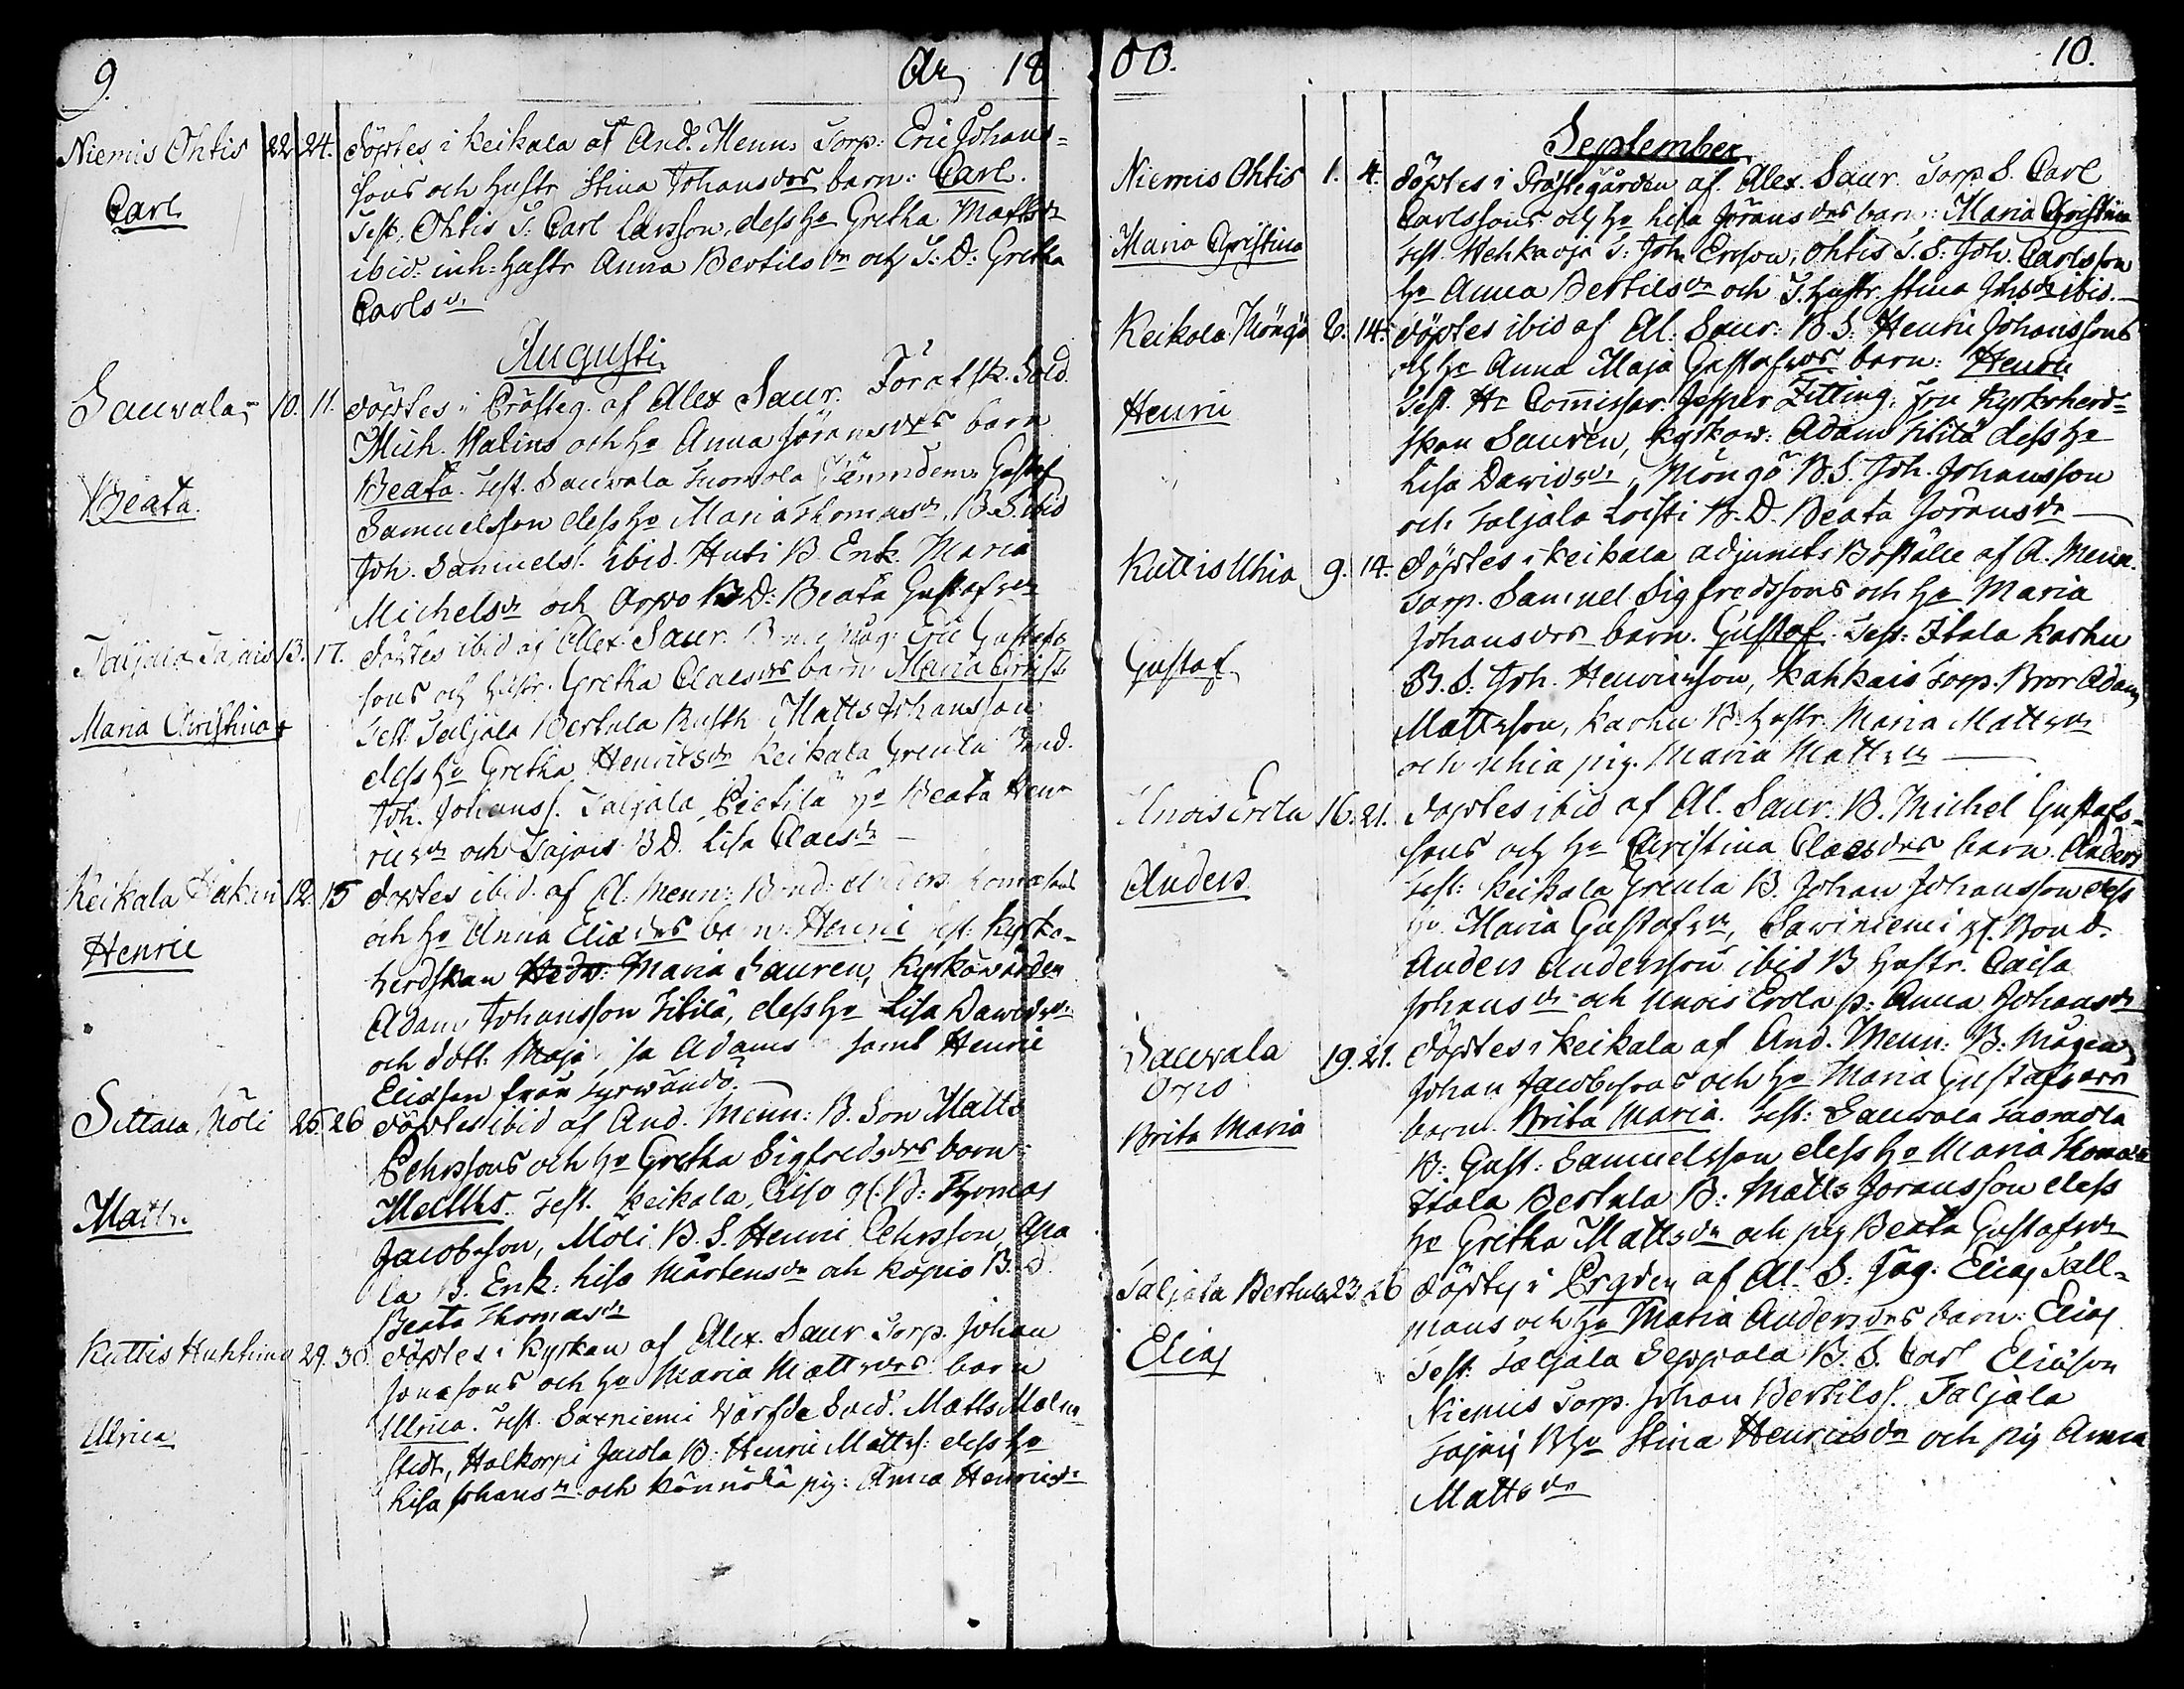 9.
År 18
Niemis Ohtis 22 24. döptes i Keikala af And. Menn. Torp. Eric Johans=
sons och hustr Stina Johansdrs barn: Carl.
Carl
Test. Ohtis T: Carl Carlsson, dess ho Gretha Mattsdr
ibid. inh: hustr Anna Bertilsdr och T: D: Gretha
Carlsdr
Augusti
Sauvala 10. 11. döptes i Prästeg. af Alex Saur. Förafsk. Sold.
Mich. Walins och ho Anna Jöransdrs barn
Beata. Test. Sauvala Gustaf
Beata.
Samuelsson dess ho Maria Thomasdr, B. S. ibid
Joh. Samuels. ibid. Huti B. Enk. Maria
Michelsdr och Orpo B D: Beata Gustafsdr
Taljala Tajais 13. 17. döptes ibid af Alex. Saur. måg: Eric Gustafs
sons och hustr. Gretha Claesdrs barn Maria Christ.
Maria Christina
Test Taljala Bertula Rusth Matts Johansson
dess ho Gretha Henricsdr Keikala Greula Bond.
Joh. Johanss. Taljala Pietilä ho Beata Hen=
ricsdr och Tajais B D. Lisa Claesdr
Keikala 12. 15 döptes ibid. af A. Menn: Bond:
och ho Anna Eliædrs barn: Henric Test: Kyrko=
Henric
herdskan Hedv: Maria Sauren, Kyrkovärden
Adam Johansson Tikilä, dess ho Lisa Davidsdr
och dott. Maja Adams samt Henric
Eliasson från Tyrwändö.
Sittala Möli 25. 26 döptes ibid af And. Menn: B. Son Matts
Pehrssons och ho Gretha Sigfredsdrs barn:
Matts. Test. Keikala, B: Thomas
Matts.
Jacobsson, Möli B. S. Henric Pehrsson,
la B. Enk: Lisa Mårtensdr och Kopio B. D.
Beata Thomasdr
Kuttis Huhtimo 29. 30. döptes i kyrkan af Alex. Saur Torp. Johan
Jonæsons och ho Maria Mattsdrs barn
Ulrica. Test. Sarniemi Värfde Sold. Matts Malm=
Ulrica
stedt, Halkorpi Jusola B: Henric Mattss: dess ho
Lisa Johansdr och Könnölä pig: Anna Henricsdr
00.
10.
September
Niemis Ohtis 1. 4. döptes i Prästegården af Alex. Saur. Torp. S. Carl
Carlssons och ho Lisa Jöransdrs barn: Maria Christina
Maria Christina
Test. Wehkaoja T: Joh Ersson, Ohtis T. S: Joh. Carlsson
ho Anna Bertilsdr och T. hustr. Stina Johsdr ibid.
Keikala Möngö 6. 14. döptes ibid af Al. Saur: B S: Henric Johanssons
och ho Anna Maja Gustafsdrs barn: Henric
Henric
Test. Hr Commissar. Jesper Zitting, Fru Kyrkoherd=
skan Sauren, kyrkow: Adam Tikilä dess ho
Lisa Davidsdr, Möngö B. S. Joh. Johansson
och Taljala Loisti B. D. Beata Jöransdr
Kuttis Uhia 9. 14. döptes i Keikala adjuncts Boställe af A. Menn.
Torp. Samuel Sigfredssons och ho Maria
Johansdrs barn. Gustaf. Test: Itala Karhu
Gustaf
B. S: Joh. Henricsson, Kahkais Torp. Bror Adam
Mattsson, Karhu B. hustr. Maria Mattsdr
och Uhia pig. Maria Mattsdr
Unois Erola 16. 21. döptes ibid af Al. Saur. B. Michel Gustafs=
sons och ho Christina Claesdrs barn. Anders
Anders
Test: Keikala Greula B. Johan Johansson dess
ho Maria Gustafsdr, Saviniemi Bond.
Anders Andersson ibid B hustr. Caisa
Johansdr och Unois Erola p: Anna Johansdr
Sauvala 19. 21. döptes i Keikala af And. Menn: B: Mågen
Orpo
Johan Jacobssons och ho Maria Gustafsdrs
Brita Maria
barn Brita Maria. Test: Sauvala
B: Gust: Samuelsson dess ho Maria Thomædr
Itala Bertula B: Matts Jöransson dess
ho Gretha Mattsdr och pig Beata Gustafsdr
Taljala Bertula 23. 26 döptes i Prgden af Al. S: Jäg: Elias Tall=
mans och ho Maria Andersdrs barn: Elias
Elias
Test. Taljala Seppala B. S. Carl Eliæson
Niemis Torp. Johan Bertilss. Taljala
Tajais B ho Stina Henricsdr och pig Anna
Mattsdr